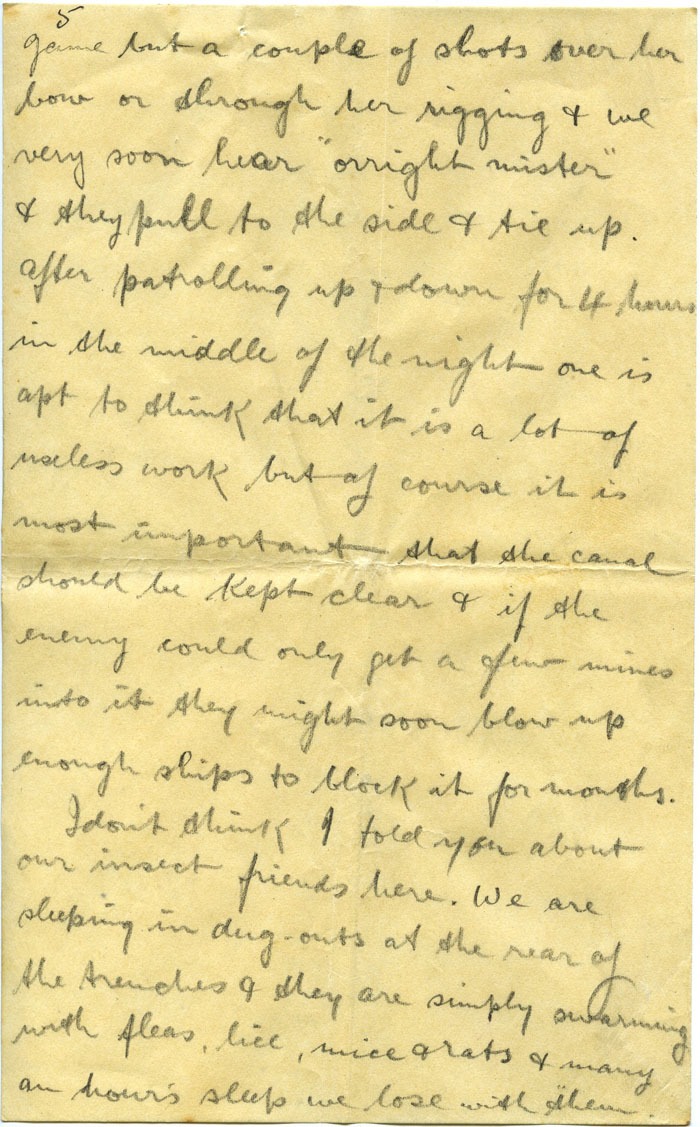 5
game but a couple of shots over her
bow or through her rigging & we
very soon hear "orright mister"
& they pull to the side & tie up.
After patrolling up & down for 4 hours
in the middle of the night one is
apt to think that it is a lot of
useless work but of course it is
most important that the canal
should be kept clear & if the
enemy could only get a few mines
into it they might soon blow up
enough ships to block it for months.
I don't think I told you about
our insect friends here. We are
sleeping in dug-outs at the rear of
the trenches & they are simply swarming
with fleas, lice, mice & rats & many
an hour's sleep we lose with them.